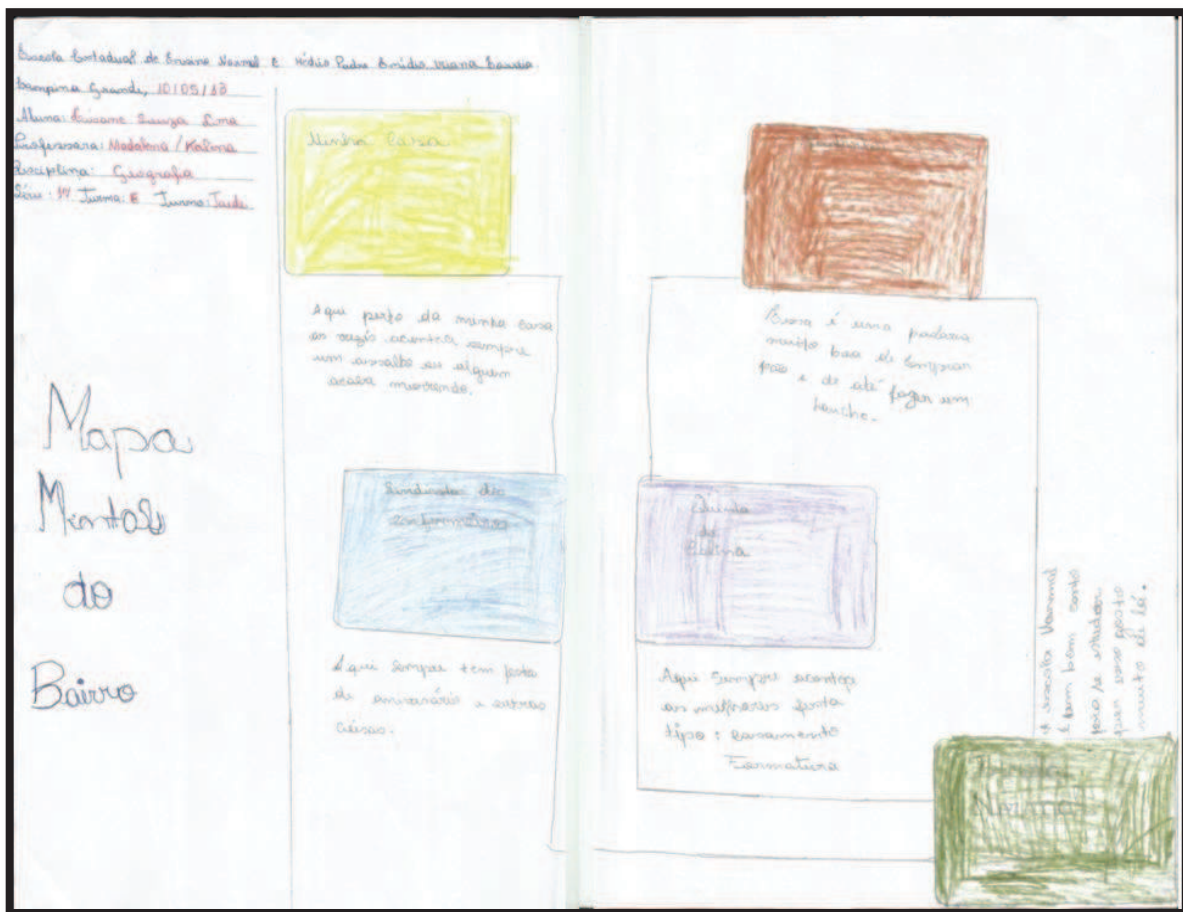 Escola Estadual de Ensino Normal e Médio Padre Emídio Viana Correia
Campina Grande, 10/05/13
Aluna: Souza Lima
Professora: Madalena / Kalina
Disciplina: Geografia
Série: Turma: E Turno: Tarde
Mapa
Mental
do
Bairro
Minha Casa
Aqui perto da minha casa
as vezis acontce sempre
um assalto ou alguem
acaba morrendo.
Sindicato de
Aqui sempre tem festa
de e outras
coisas.
Essa é uma padaria
muito boa de comprar
pão e de até fazer um
lancho.
Quinta
da
Colina
Aqui sempre acontece
as milhores festa
tipo: casamento
Formatura
A escola Normal
é bem
para se estudar
por isso gosto
muito de lá.
Escola
Normal